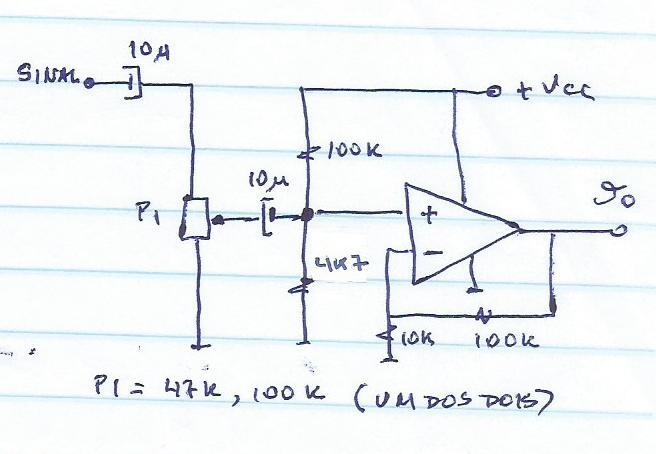 10µ
SINAL
+ Vcc
100K
10µ
P1
+
-
vo
4K7
10K
100K
P1 = 47K, 100K (UM DOS DOIS)